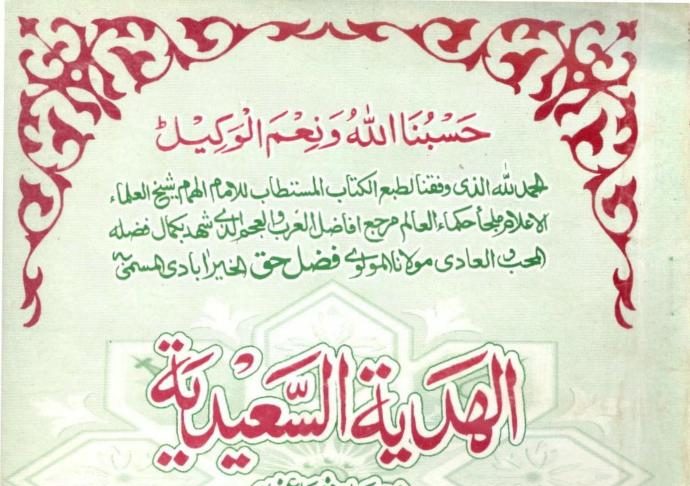 حَسْبُنَا اللّٰهُ وَنِعْمَ الْوَكِيْلُ
الحمد للّٰه الذی وفقنا لطبع الكتاب المستطاب للامام الهمام شیخ العلماء
الاعلام ملجأ حكماء العالم مرجع افاضل العرب والعجم الذی شهد بكمال فضله
المحب والعادی مولانا المولوی فضل حق الخیرابادی المسمیٰ به
الهَدية السَّعيْدية